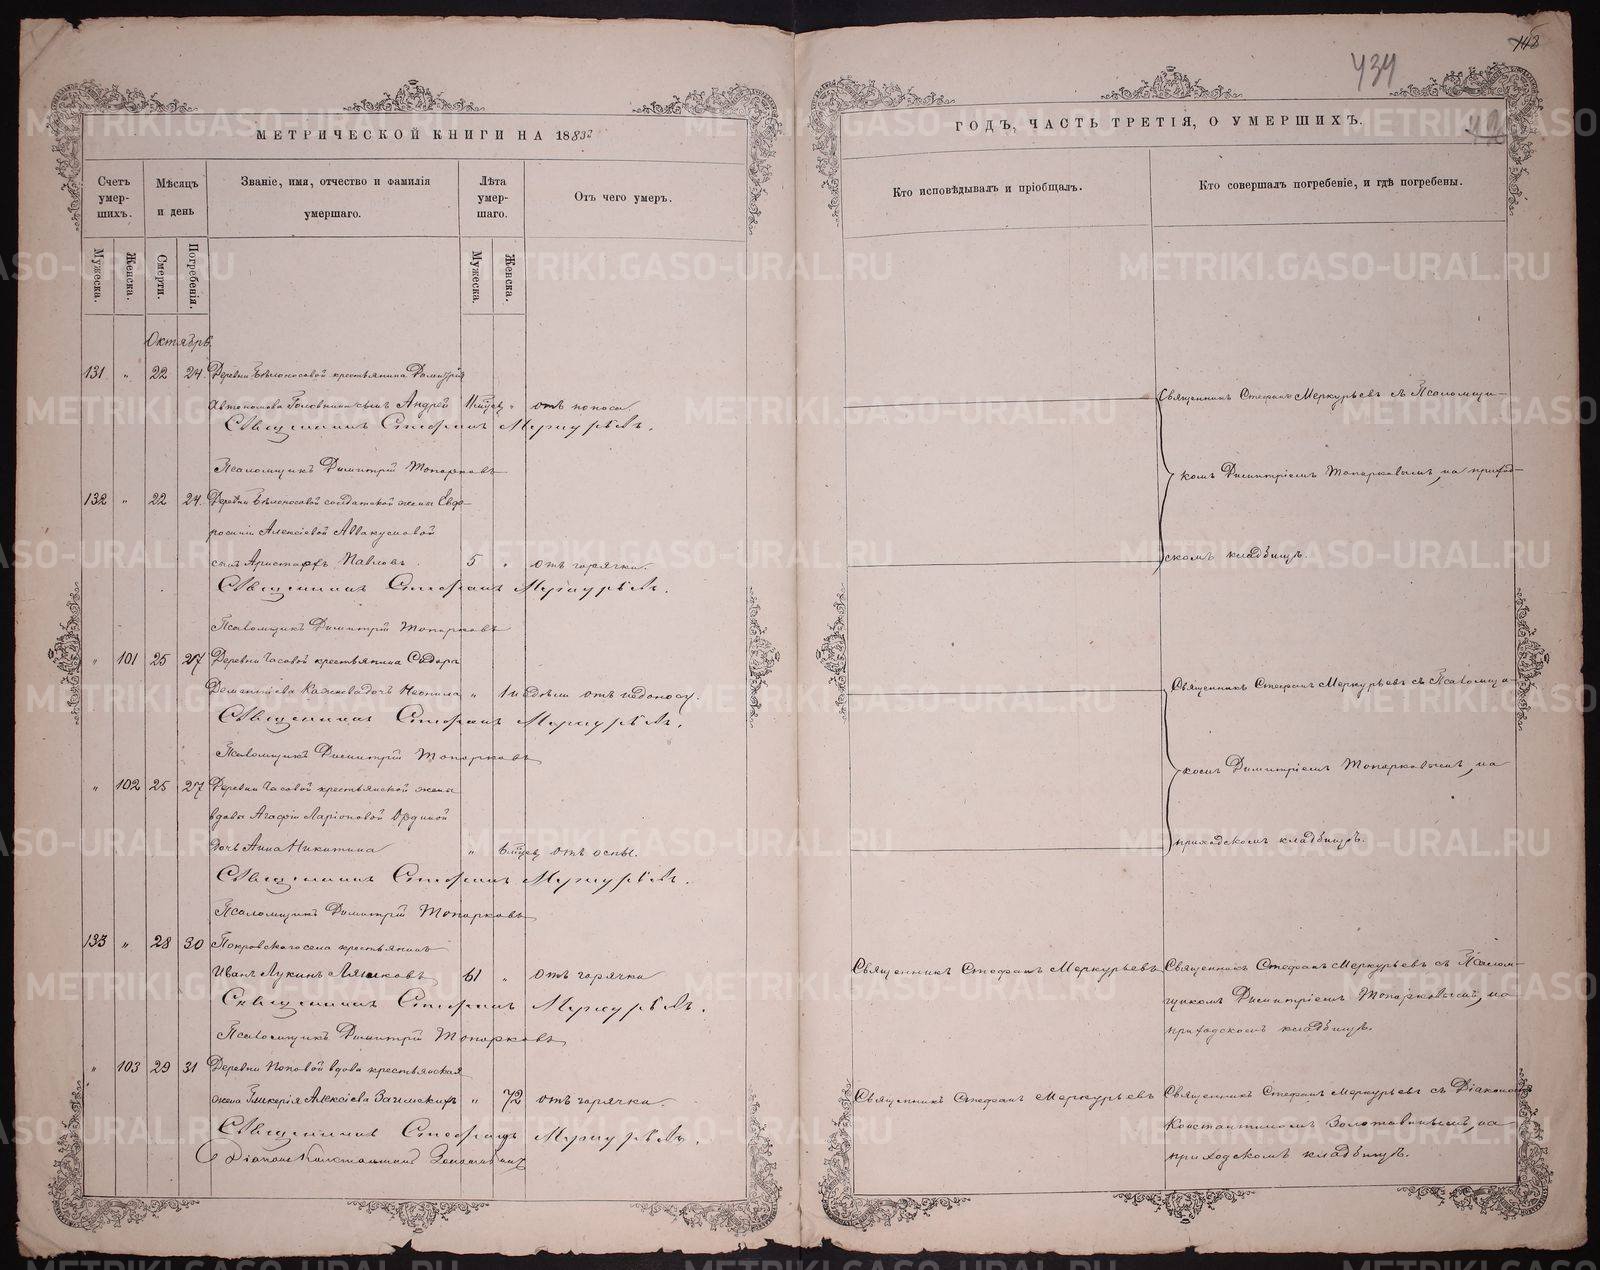 148
434
МЕТРИЧЕСКОЙ КНИГИ НА 1883й
ГОДЪ, ЧАСТЬ ТРЕТІЯ, О УМЕРШИХЪ.
Счетъ умер-шихъ.
Мѣсяцъ и день
Званіе, имя, отчество и фамилія умершаго.
Лѣта умер-шаго.
Отъ чего умеръ.
Кто исповѣдывалъ и пріобщалъ.
Кто совершалъ погребеніе, и гдѣ погребены.
Мужеска.
Женска.
Смерти.
Погребенія.
Мужеска.
Женска.
Октябрь
131 " 22 24 Деревни Бѣлоносовой крестьянина Димитрія
Автономова Головнина сынъ Андрей " отъ поноса
Священникъ Стефанъ Меркурьевъ.
Псаломщикъ Димитрій Топорковъ
Священникъ Стефанъ Меркурьевъ съ Псаломщи-
комъ Димитріемъ Топорковымъ, на приход-
скомъ кладбищѣ.
132 " 22 24 Деревни Бѣлоносовой солдатской жены Евдо-
росиніи Алексіевой Аввакумовой
сынъ Аристархъ Павловъ 5 " отъ горячки.
Священникъ Стефанъ Меркурьевъ.
Псаломщикъ Димитрій Топорковъ
" 101 25 27 Деревни Часовой крестьянина Сидора
Дементіева дочь Неонила " 1 недѣли отъ недоноску.
Священникъ Стефанъ Меркурьевъ.
Псаломщикъ Димитрій Топорковъ
Священникъ Стефанъ Меркурьевъ съ Псаломщи-
комъ Димитріемъ Топорковымъ, на
приходскомъ кладбищѣ.
" 102 25 27 Деревни Часовой крестьянской жены
вдовы Агафіи Ларіоновой
дочь Анна Никитина " 6 мѣсяц. отъ оспы.
Священникъ Стефанъ Меркурьевъ.
Псаломщикъ Димитрій Топорковъ
133 " 28 30 Покровскаго села крестьянинъ
Иванъ Лукинъ Ляшковъ 61 " отъ горячки
Священникъ Стефанъ Меркурьевъ.
Псаломщикъ Димитрій Топорковъ
Священникъ Стефанъ Меркурьевъ
Священникъ Стефанъ Меркурьевъ съ Псалом-
щикомъ Димитріемъ Топорковымъ, на
приходскомъ кладбищѣ.
" 103 29 31 Деревни Поповой вдова крестьянская
жена Гликерія Алексіева " 72 отъ горячки.
Священникъ Стефанъ Меркурьевъ.
Діаконъ Константинъ Золотавинъ
Священникъ Стефанъ Меркурьевъ
Священникъ Стефанъ Меркурьевъ съ Діакономъ
Константиномъ Золотавинымъ, на
приходскомъ кладбищѣ.
METRIKI.GASO-URAL.RU